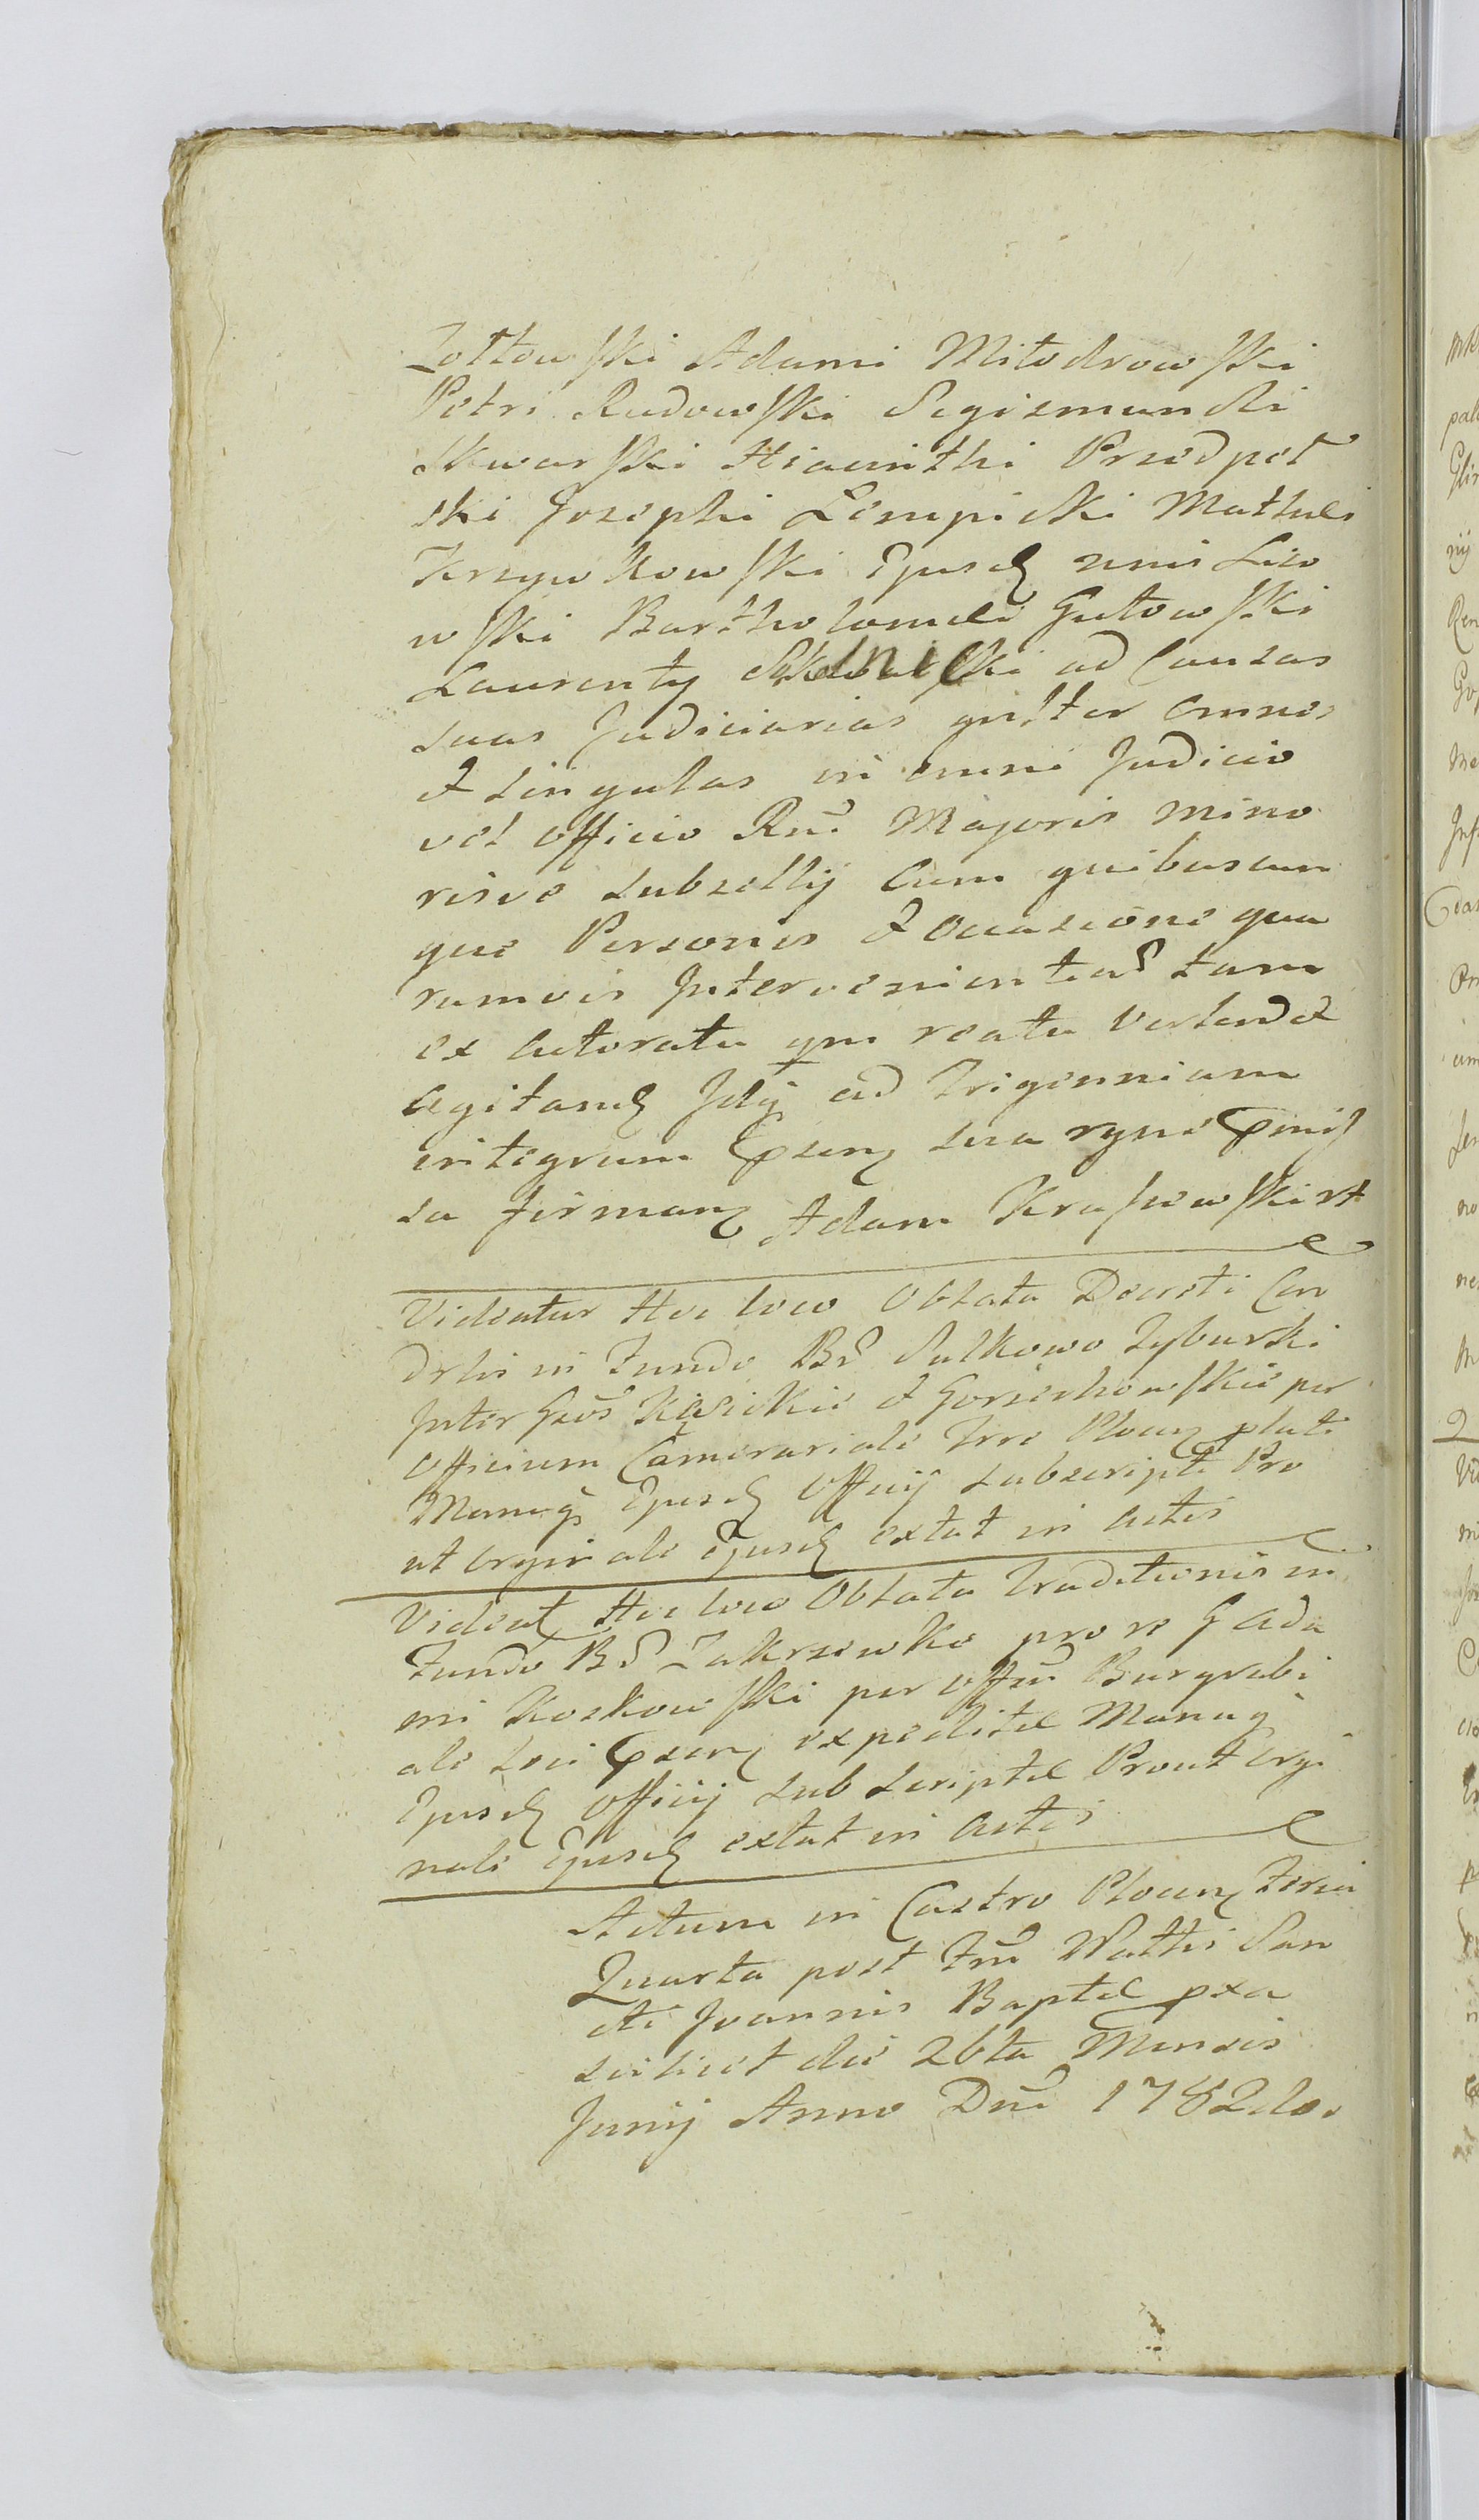 Zołtowski Adami Miłodrowski
Petri Rudowski Segismundi
Skwarski Hiacinthi Przedpeł
ski Josephi Lempicki Mathei
Krzywkowski Ejusd
wski Bartholomei Gutowski
Laurenty ad Causas
suas Judiciarias omnes
et singulas in omni Judicio
vel officio Rni Majoris mino
risve subsellij Cum quibuscun
que Personis et occasione qua
rumvis Intervenientes tam
ex actoratu qm reatu vertend et
Agitand Jdq ad Trigennium
integrum sua
sa firmanq Adam Krajewski
Videatur Hoc loco Oblata Decreti Con
in Fundo Bs Sulkowo Zyburski
Inter et Gorzechowskie per
Officium Camerariale Trre Plocen plati
Manuq Ejusd Officij subscripti Pro
ut orginale Ejusd extat in actis
Videat Hoc loco Oblata Traditionis in
Fundo Bs Zakrzewko pro re G Ada
mi Koskowski per offm Burgrabi
ale expeditae Manuq
Ejusd officij subscriptae Prout orgi
nale Ejusd extat in actis
Actum in Castro Plocen Feria
Quarta post Fm Natlis San
cti Joannis Baptae pxa
scilicet die 26ta Mensis
Junij Anno Dni 1782do.